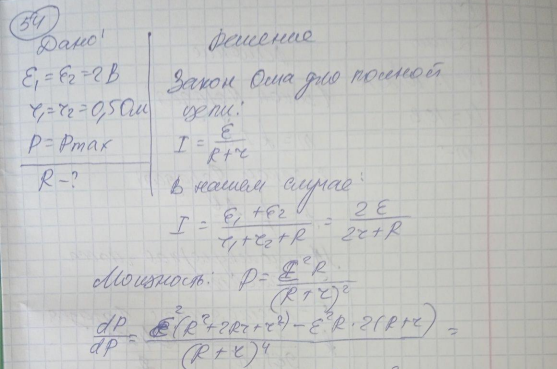 54
Дано!
ε₁ = ε₂ = 2В
r₁ = r₂ = 0,5 Ом
P = Pmax
R - ?
Решение
Закон Ома для полной
цепи:
I = ε / (R + r)
В нашем случае:
I = (ε₁ + ε₂) / (r₁ + r₂ + R) = 2ε / (2r + R)
Мощность: P = ε²R / (R + r)²
dP/dP = (ε²(R² + 2Rr + r²) - ε²R · 2(R + r)) / (R + r)⁴ =